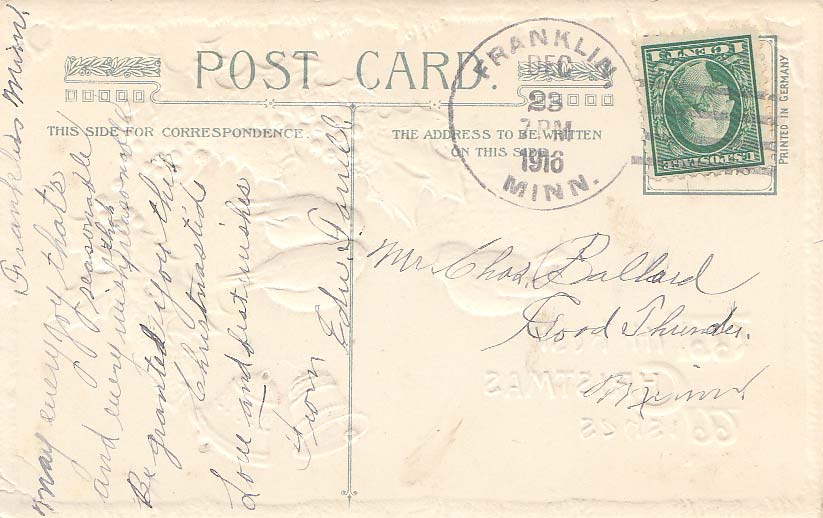 POST CARD.
THIS SIDE FOR CORRESPONDENCE.
THE ADDRESS TO BE WRITTEN
ON THIS SIDE
FRANKLIN,
DEC
23
7 PM
1916
MINN.
1 CENT 1
U.S. POSTAGE
PRINTED IN GERMANY
Franklin Minn.
May every joy that's
seasonable
and every wish that's
Be granted you this
Christmastide
Love and best wishes
from
Mr Chas. Ballard
Good Thunder.
Minn.
CHRISTMAS